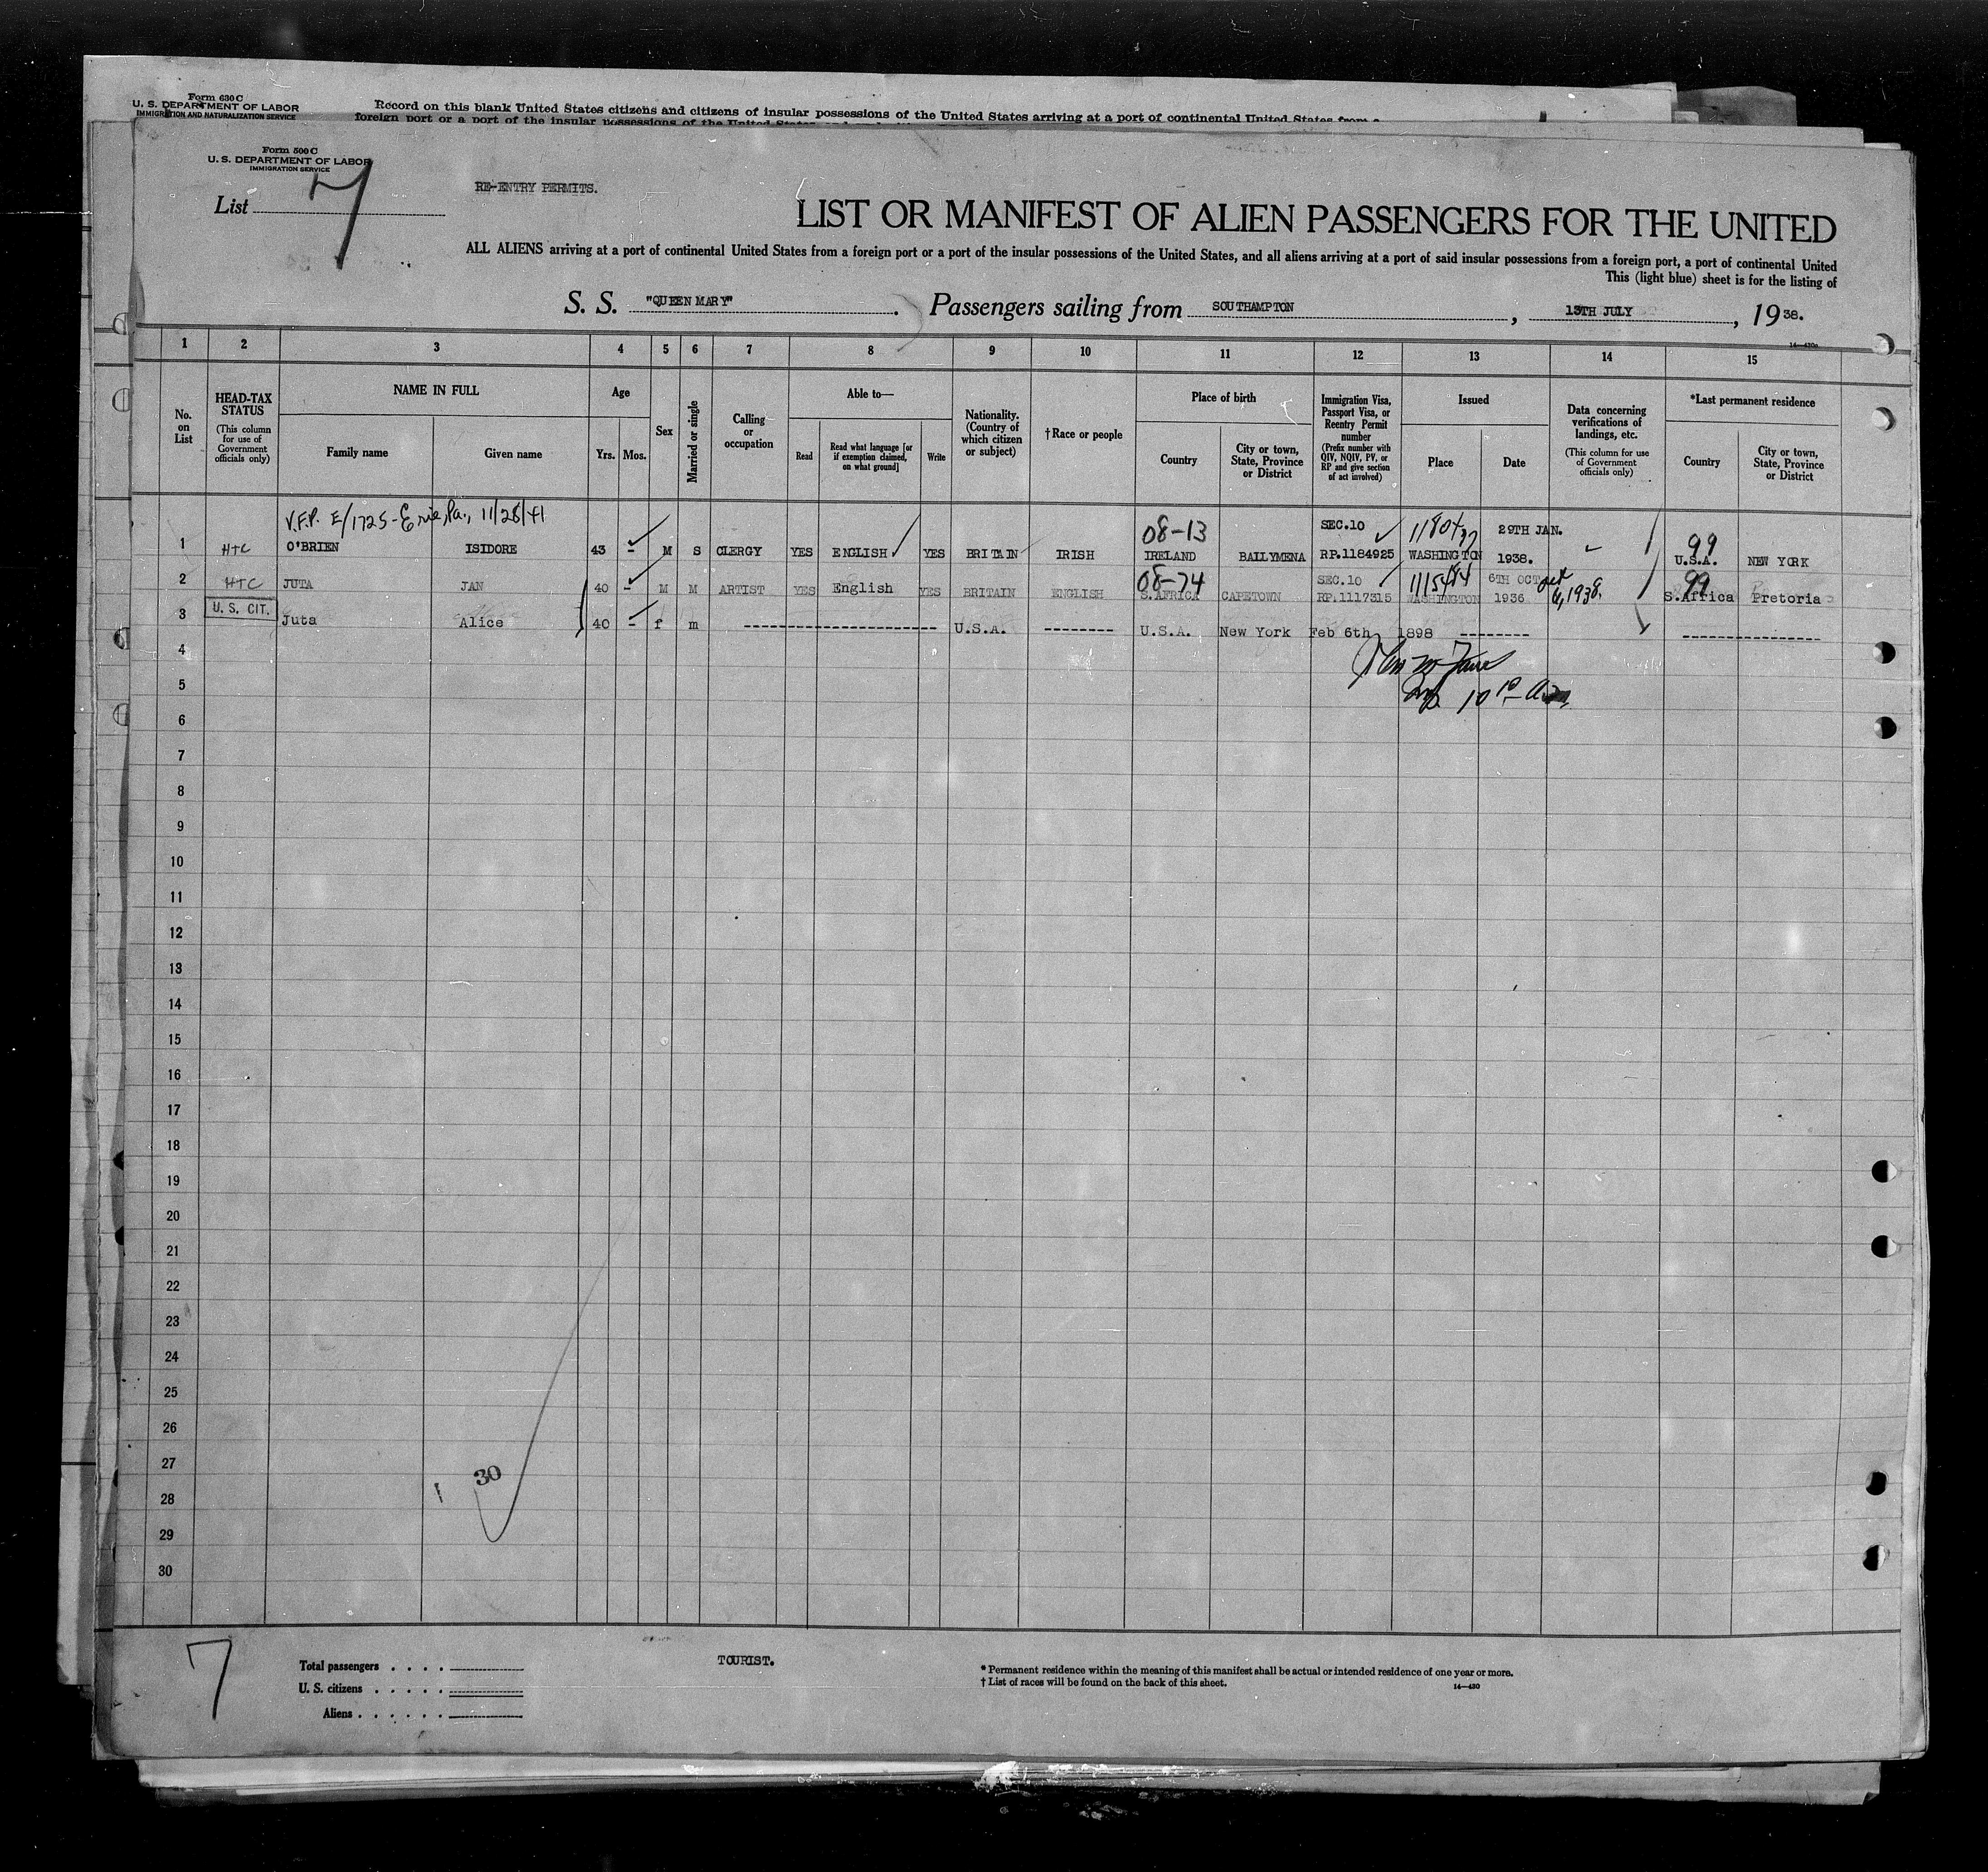 Form 630 C
U. S. DEPARTMENT OF LABOR
IMMIGRATION AND NATURALIZATION SERVICE
Record on this blank United States citizens and citizens of insular possessions of the United States arriving at a port of continental United States from a
foreign port or a port of the insular possessions of the United States
Form 500 C
U. S. DEPARTMENT OF LABOR
IMMIGRATION SERVICE
List 7
RE-ENTRY PERMITS.
LIST OR MANIFEST OF ALIEN PASSENGERS FOR THE UNITED
ALL ALIENS arriving at a port of continental United States from a foreign port or a port of the insular possessions of the United States, and all aliens arriving at a port of said insular possessions from a foreign port, a port of continental United
This (light blue) sheet is for the listing of
S. S. "QUEEN MARY". Passengers sailing from SOUTHAMPTON, 13TH JULY, 1938.
14—430a
1 2 3 4 5 6 7 8 9 10 11 12 13 14 15
No. on List
HEAD-TAX STATUS
(This column for use of Government officials only)
NAME IN FULL
Family name
Given name
Age
Yrs.
Mos.
Sex
Married or single
Calling or occupation
Able to—
Read
Read what language [or if exemption claimed, on what ground]
Write
Nationality. (Country of which citizen or subject)
†Race or people
Place of birth
Country
City or town, State, Province or District
Immigration Visa, Passport Visa, or Reentry Permit number
(Prefix number with QIV, NQIV, PV, or RP and give section of act involved)
Issued
Place
Date
Data concerning verifications of landings, etc.
(This column for use of Government officials only)
*Last permanent residence
Country
City or town, State, Province or District
V.F.P. E/1725-Erie, Pa., 11/28/41
08-13 SEC.10 29TH JAN. 99
1 HTC O'BRIEN ISIDORE 43 - M S CLERGY YES ENGLISH YES BRITAIN IRISH IRELAND BALLYMENA RP.1184925 WASHINGTON 1938. U.S.A. NEW YORK
08-74 SEC.10 6TH OCT 99
2 HTC JUTA JAN 40 - M M ARTIST YES English YES BRITAIN ENGLISH S.AFRICA CAPETOWN RP.1117315 WASHINGTON 1936 6, 1938. S.Africa Pretoria
U. S. CIT.
3 Juta Alice 40 - f m -------------------- U.S.A. -------- U.S.A. New York Feb 6th 1898 -------- ----------------
4
5
6
7
8
9
10
11
12
13
14
15
16
17
18
19
20
21
22
23
24
25
26
27
30
28
29
30
7
Total passengers . . . .
U. S. citizens . . . . .
Aliens . . . . . .
TOURIST.
* Permanent residence within the meaning of this manifest shall be actual or intended residence of one year or more.
† List of races will be found on the back of this sheet.
14—430